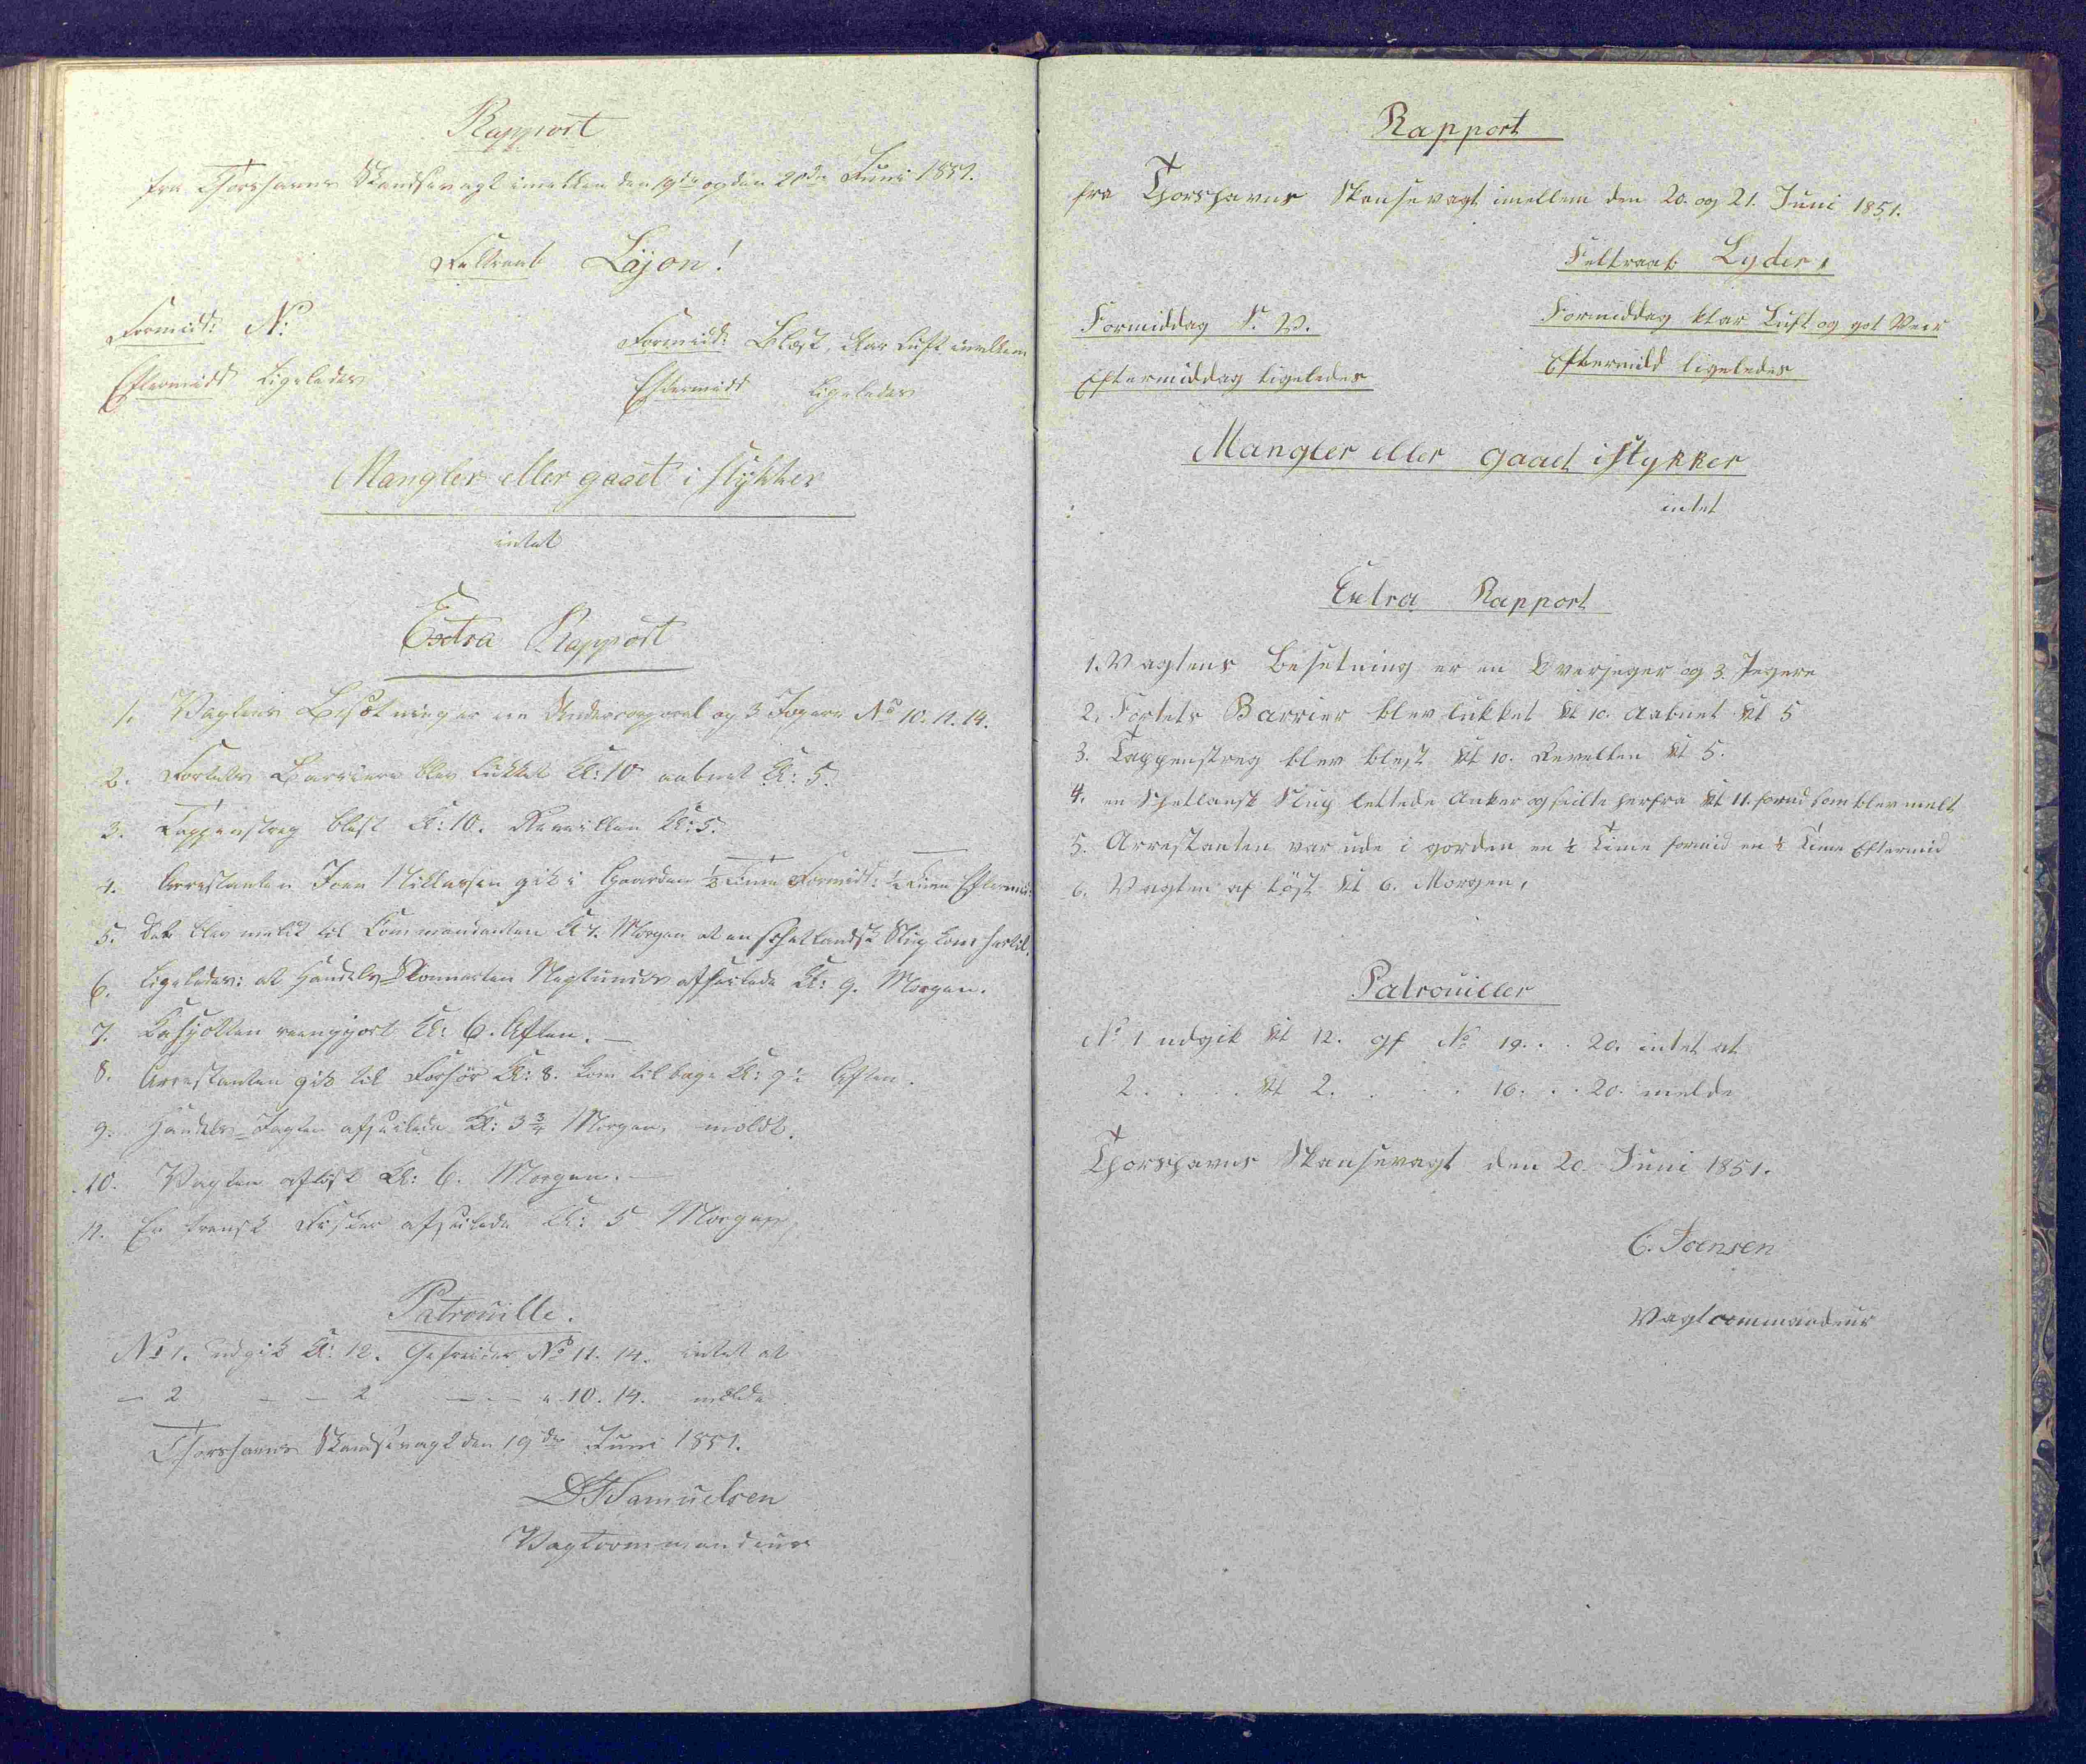 Rapport
fra Thorshavns Skandsevagt imellem den 19de og den 20de Juni 1851.
Feltraab Lajon!
Formid: N:
Formid: Blæst, klar Luft imellem
Eftermidd Ligeledes
Eftermidd Ligeledes
Mangler eller gaaet i stykker
intet
Extra Rapport
1. Vagtens Besætning er en Undercorporal og 3 Jægere No 10. 11. 14.
2. Fortets Barriere blev lukket Kl: 10 aabnet Kl: 5.
3. Tappenstreg blæst Kl: 10. Revellien Kl: 5.
4. Arrestanten Joen Niklassen gik i Gaarden ½ Time Formid: ½ Time Eftermid:
5. Det blev meldt til Commandanten Kl 7. Morgen at en schetlandsk Slup kom hertil.
6. Ligeledes: at Handels-Skonnerten Neptunus afseilede Kl: 9. Morgen.
7. reengjort Kl: 6. Aften. —
8. Arrestanten gik til Forhør Kl: 8. kom tilbage Kl: 9½ Aften.
9. Handels-Jagten afseilede Kl: 3¾ Morgen. meldt.
10. Vagten afløst Kl: 6. Morgen. —
11. En fransk Fisker afseilede Kl: 5 Morgen.
Patrouille.
No 1. udgik Kl: 12. Gefreider No 11. 14. intet at
— 2 — — 2 — — — " 10. 14. — melde
Thorshavns Skandsevagt den 19de Juni 1851.
Samuelsen
Vagtcommandeur
Rapport
fra Thorshavns Skansevagt imellem den 20. og 21. Juni 1851.
Feltraab Lyder,
Formiddag S. V.
Formiddag klar Luft og got Veir
Eftermiddag ligeledes
Eftermidd ligeledes
Mangler eller gaaet istykker
intet
Extra Rapport
1. Vagtens Besetning er en Overjeger og 3. Jegere
2. Fortets Barrier blev lukket Kl 10. Aabnet Kl 5
3. Tappenstreg blev blest Kl 10. Revellien Kl 5.
4. en Schetlansk Slup lettede Anker og seilte herfra Kl 11. formid som blev melt
5. Arrestanten var ude i gorden en ½ Time formid en ½ Time Eftermid
6. Vagten af löst Kl 6. Morgen,
Patrouiller
No 1 udgik Kl 12. gf No 19. . . 20. intet at
2. . . . Kl 2. . . . 16. . . 20. melde
Thorshavns Skansevagt den 20. Juni 1851.
C. Joensen
Vagtcommandeur